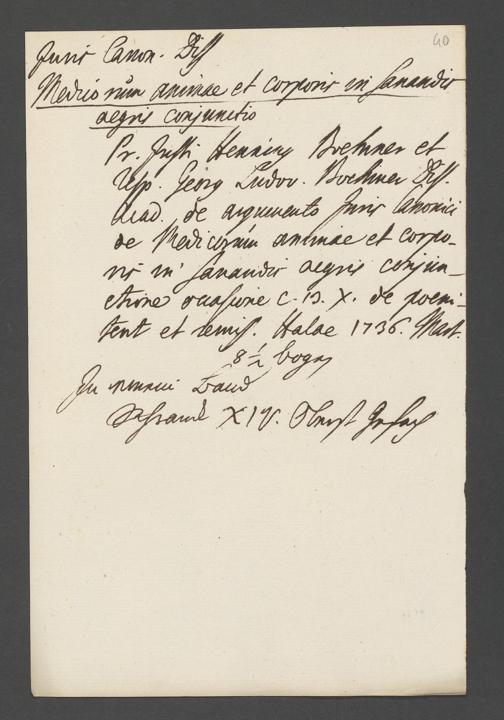 40
Juris Canon. Diss
Medicorum animae et corporis in sanandis
aegris conjunctio
Pr. Justi Henning Boehmer et
Resp. Georg Ludov. Boehmer Diss.
Acad. de argumento Juris Canonici
de Medicorum animae et corpo-
ris in sanandis aegris conjun-
ctione occasione c. 13. X. de poeni-
tent et remiss. Halae 1736. Mart.
8 1/2 bogen
In
XIV.